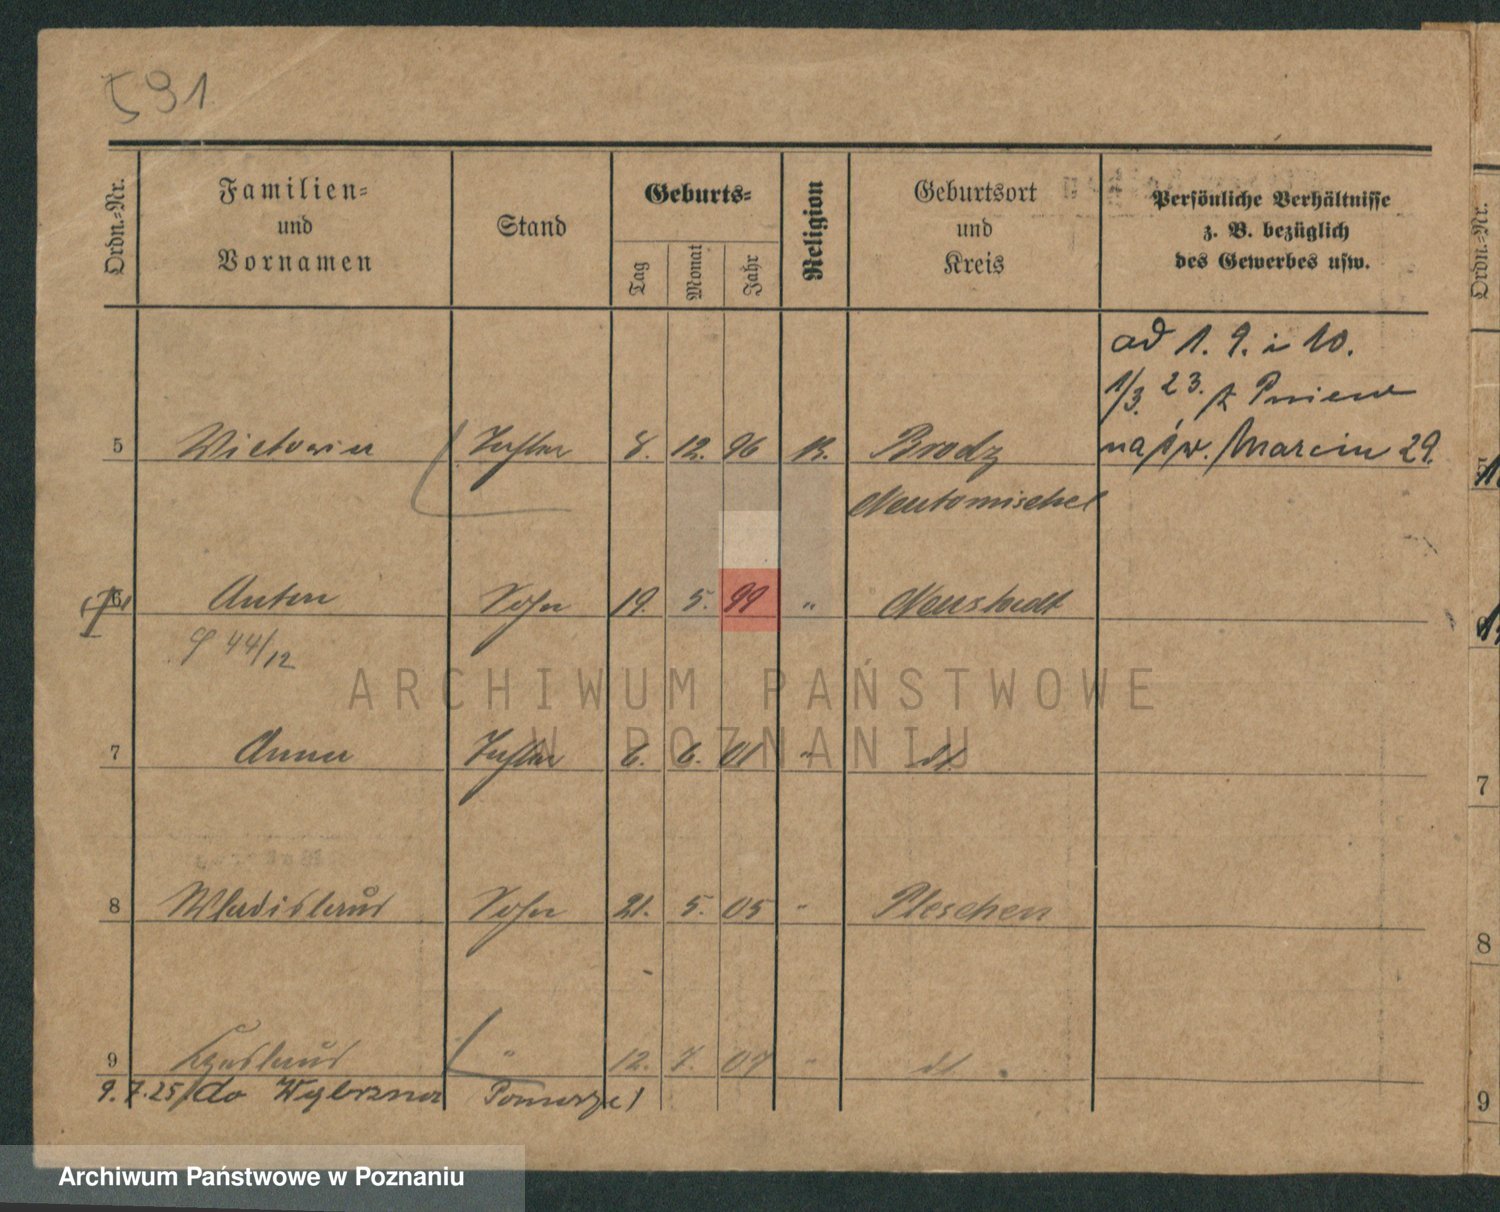 591
Ordn.-Nr.
Familien-
und
Vornamen
Stand
Geburts-
Tag
Monat
Jahr
Religion
Geburtsort
und
Kreis
Persönliche Verhältnisse
z. B. bezüglich
des Gewerbes usw.
ad 1. 9. i 10.
1/3. 23. z Pniew
na św. Marcin 29.
5 Victoria Tochter 8. 12. 96 K. Brody
Neutomischel
6 Anton Sohn 19. 5. 99 " Neustadt
44/12
7 Anna Tochter 6. 6. 01 " dt
8 Wladislaus Sohn 21. 5. 05 " Pleschen
9 Czeslaus " 12. 7. 07 " dt
9. 7. 25 do
Ordn.-Nr.
7
8
9
ARCHIWUM PAŃSTWOWE
W POZNANIU
Archiwum Państwowe w Poznaniu